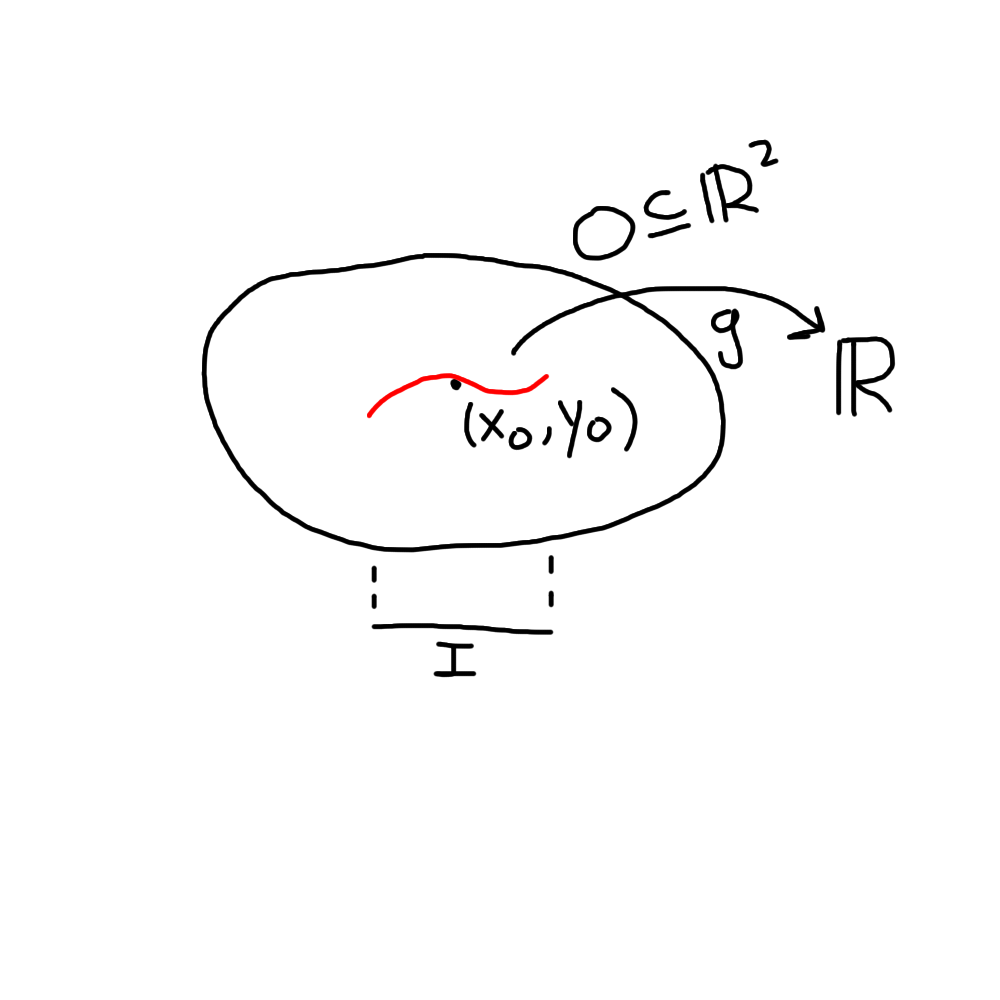 O ⊆ ℝ²
g
ℝ
(x₀, y₀)
I